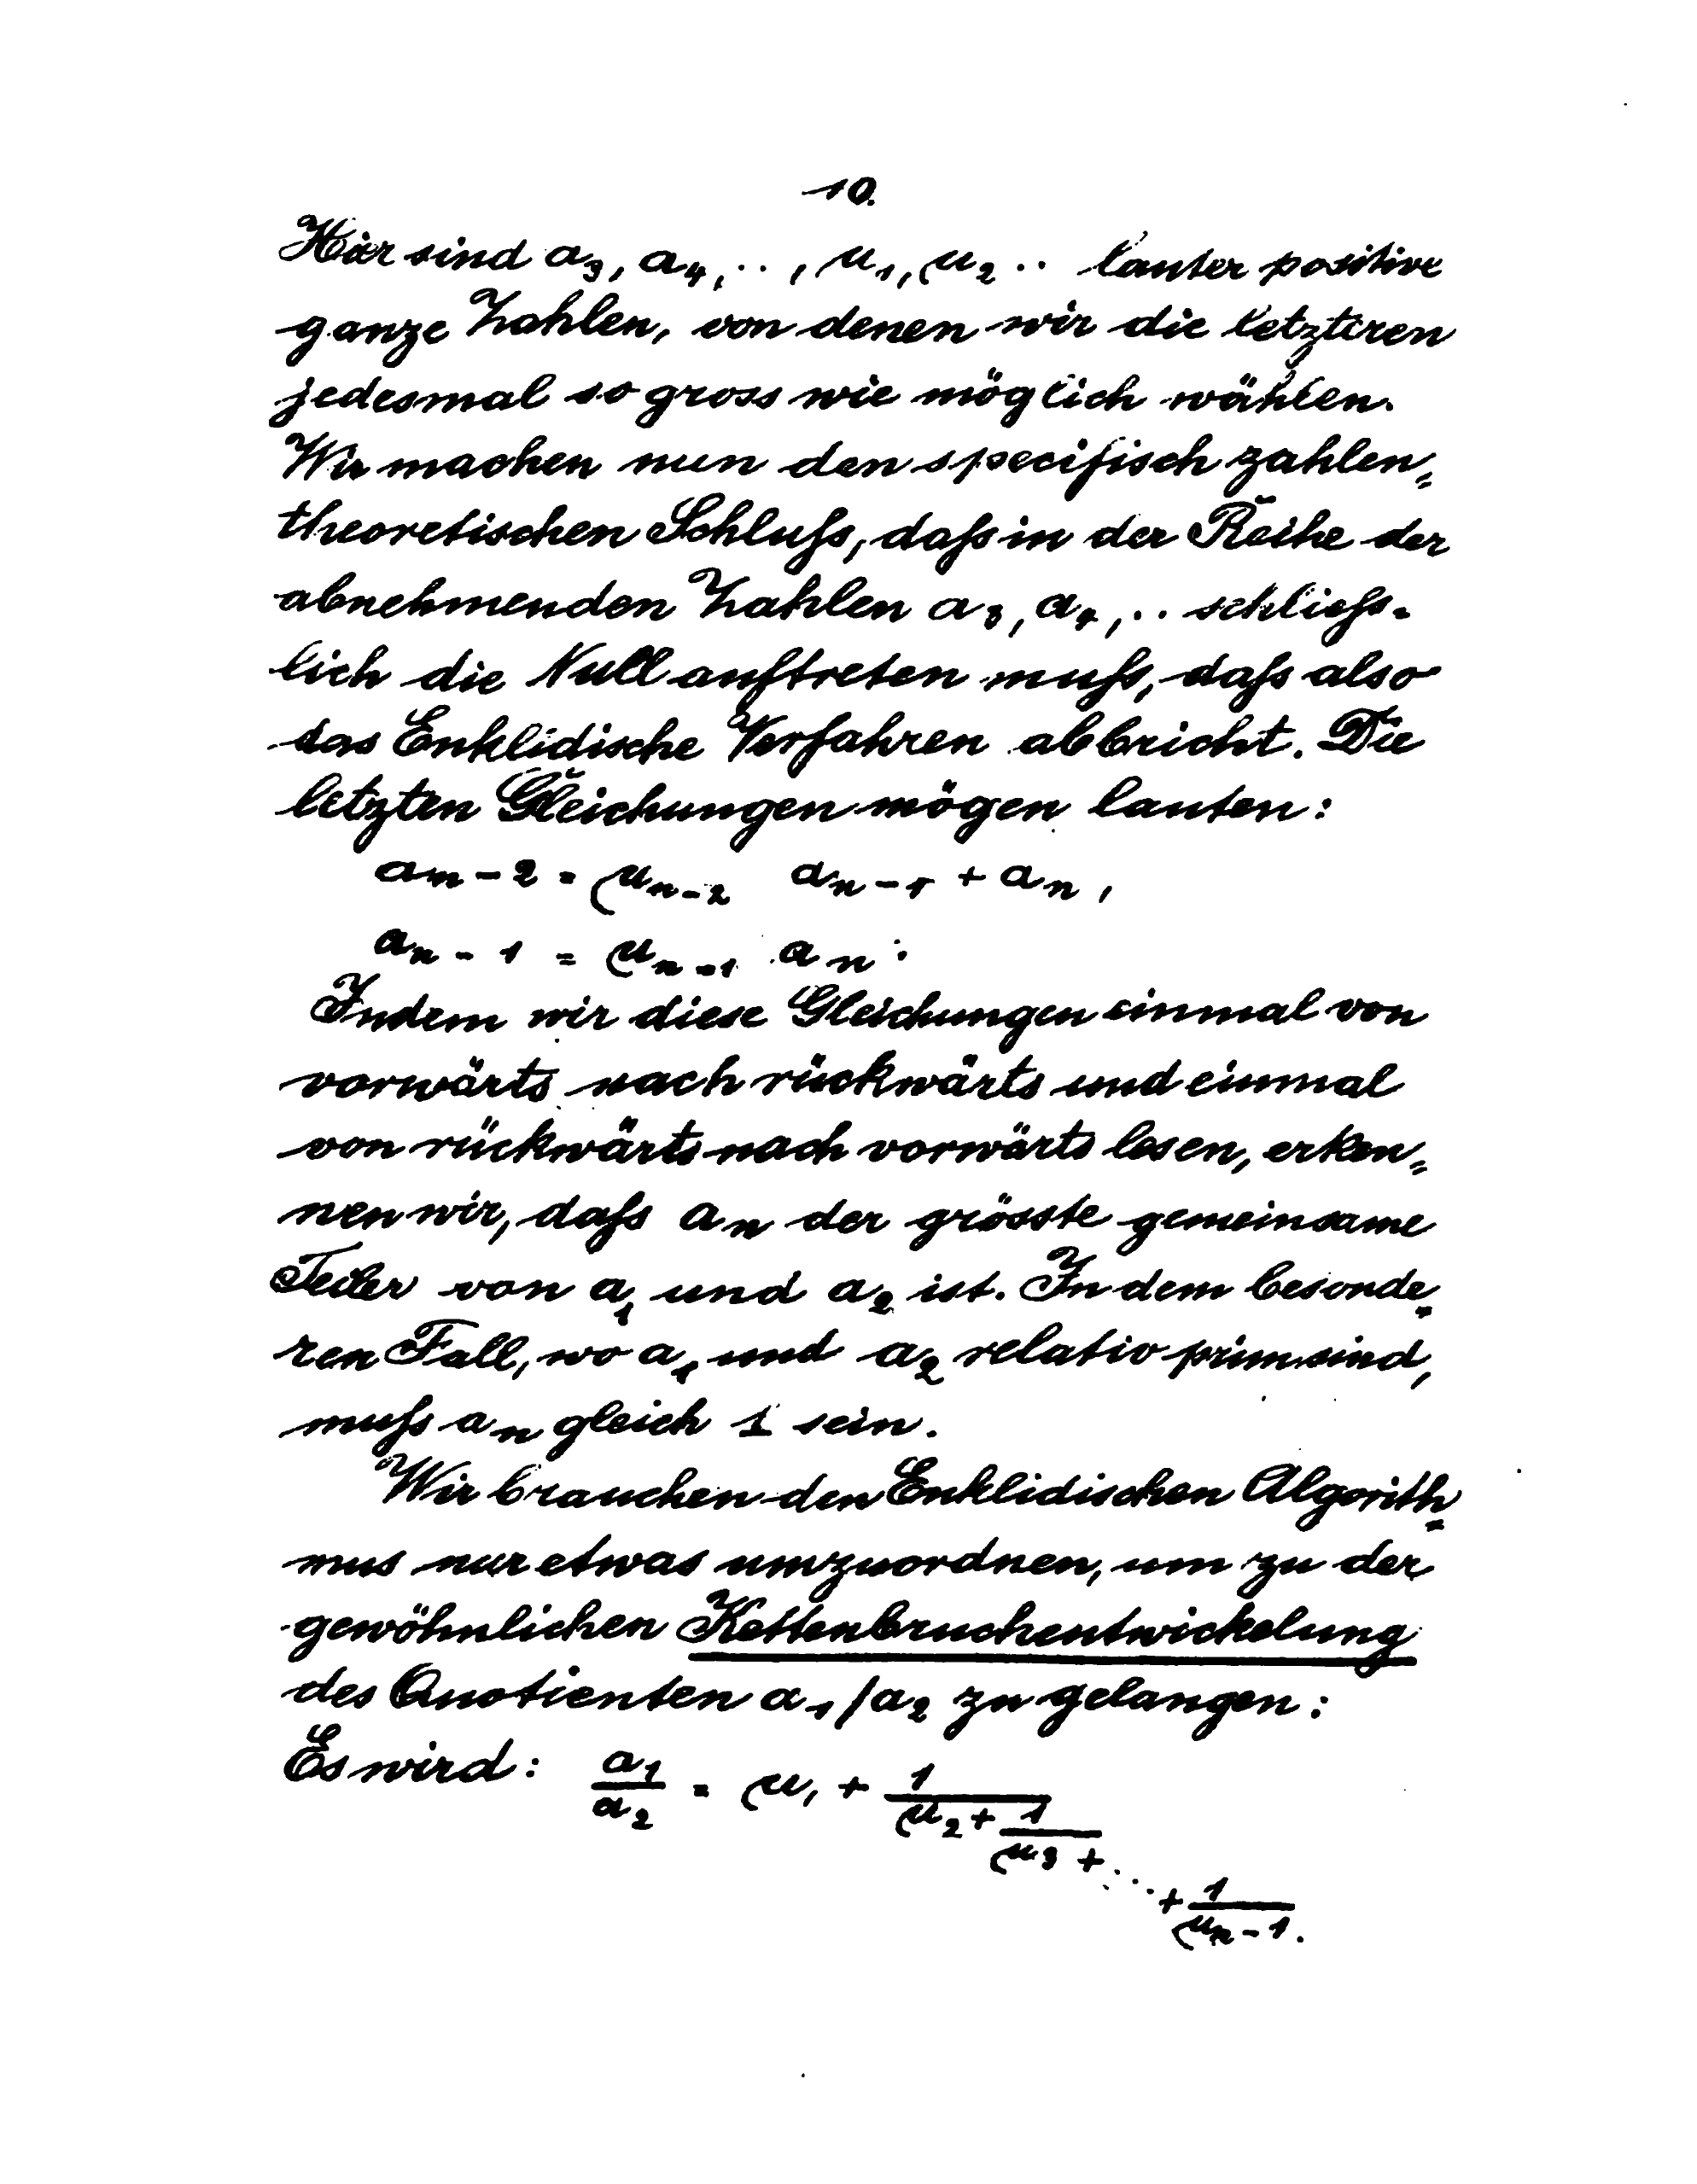 10.
Hier sind a₃, a₄, .. , μ₁, μ₂ .. lauter positive
ganze Zahlen, von denen wir die letzteren
jedesmal so gross wie möglich wählen.
Wir machen nun den specifisch zahlen=
theoretischen Schluſs, daſs in der Reihe der
abnehmenden Zahlen a₃, a₄, .. schlieſs=
lich die Null auftreten muſs, daſs also
das Euklidische Verfahren abbricht. Die
letzten Gleichungen mögen lauten:
aₙ₋₂ = μₙ₋₂ aₙ₋₁ + aₙ,
aₙ₋₁ = μₙ₋₁ aₙ.
Indem wir diese Gleichungen einmal von
vorwärts nach rückwärts und einmal
von rückwärts nach vorwärts lesen, erken=
nen wir, daſs aₙ der grösste gemeinsame
Teiler von a₁ und a₂ ist. In dem besonde=
ren Fall, wo a₁ und a₂ relativ prim sind,
muſs aₙ gleich 1 sein.
Wir brauchen den Euklidischen Algorith=
mus nur etwas umzuordnen, um zu der
gewöhnlichen Kettenbruchentwickelung
des Quotienten a₁/a₂ zu gelangen:
Es wird: a₁/a₂ = μ₁ + 1/μ₂ + 1/μ₃ + ... + 1/μₙ₋₁.